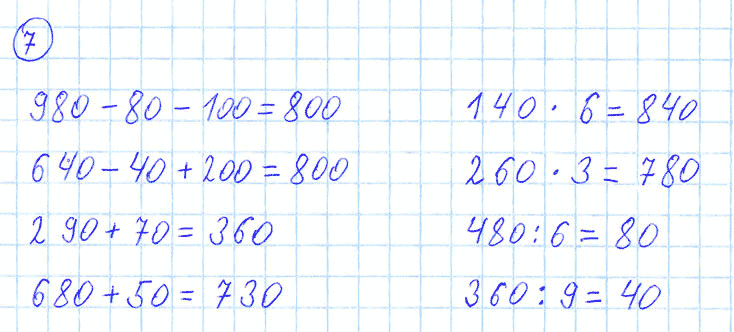 7
980 - 80 - 100 = 800
640 - 40 + 200 = 800
290 + 70 = 360
680 + 50 = 730
140 · 6 = 840
260 · 3 = 780
480 : 6 = 80
360 : 9 = 40